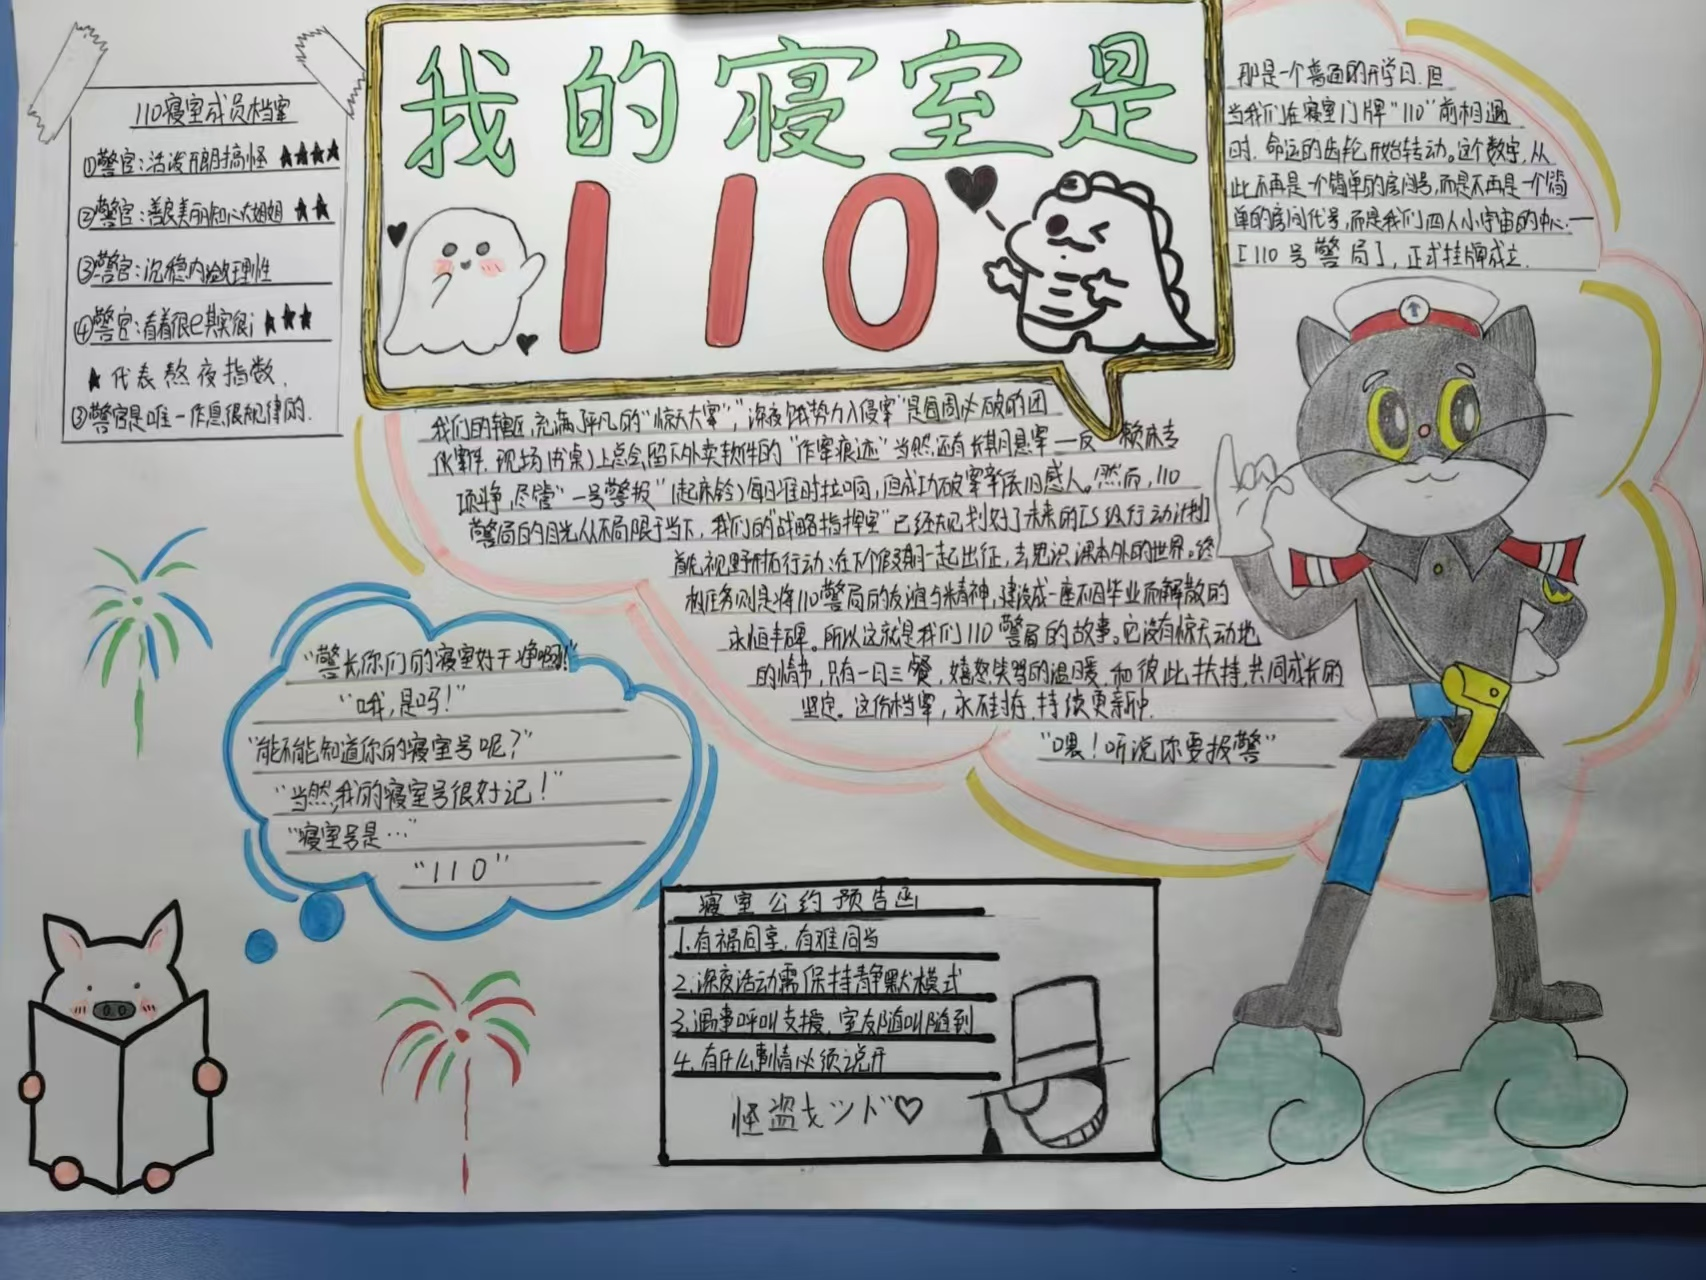 我的寝室是
110
110寝室成员档案
①警官:活泼开朗搞怪 ★★★★
②警官:善良美丽知心大姐姐 ★★
③警官:沉稳内敛理性
④警官:看着很e其实很i ★★★
★代表熬夜指数.
③警官是唯一作息很规律的.
那是一个普通的开学日.但
当我们在寝室门牌“110”前相遇
时.命运的齿轮开始转动。这个数字,从
此不再是一个简单的房间号,而是不再是一个简
单的房间代号,而是我们四人小宇宙的中心.—
[110号警局],正式挂牌成立.
我们的辖区,充满了平凡的“惊天大案”,“深夜饿势力入侵案”是每周必破的团
伙案件.现场(书桌)上总会留下外卖软件的“作案痕迹”当然,还有长期悬案—反赖床专
项斗争,尽管“一号警报”(起床铃)每日准时拉响,但成功破案率依旧感人。然而,110
警局的目光从不局限于当下,我们的“战略指挥室”已经规划好了未来的[S级行动计划]
首先,视野开拓行动:在下个假期一起出征,去见识课本外的世界。终
极任务则是将110警局的友谊与精神,建设成一座不因毕业而解散的
永恒丰碑。所以这就是我们110警局的故事。它没有惊天动地
的情节,只有一日三餐,嬉怒笑骂的温暖,和彼此扶持,共同成长的
坚定。这份档案,永硅封存.持续更新中.
“喂!听说你要报警”
“警长你们的寝室好干净啊!”
“哦,是吗!”
“能不能知道你的寝室号呢?”
“当然,我的寝室号很好记!”
“寝室号是…”
“110”
寝室公约预告函
1.有福同享,有难同当
2.深夜活动需保持静默模式
3.遇事呼叫支援,室友随叫随到
4.有什么事情必须说开
怪盗キッド♡